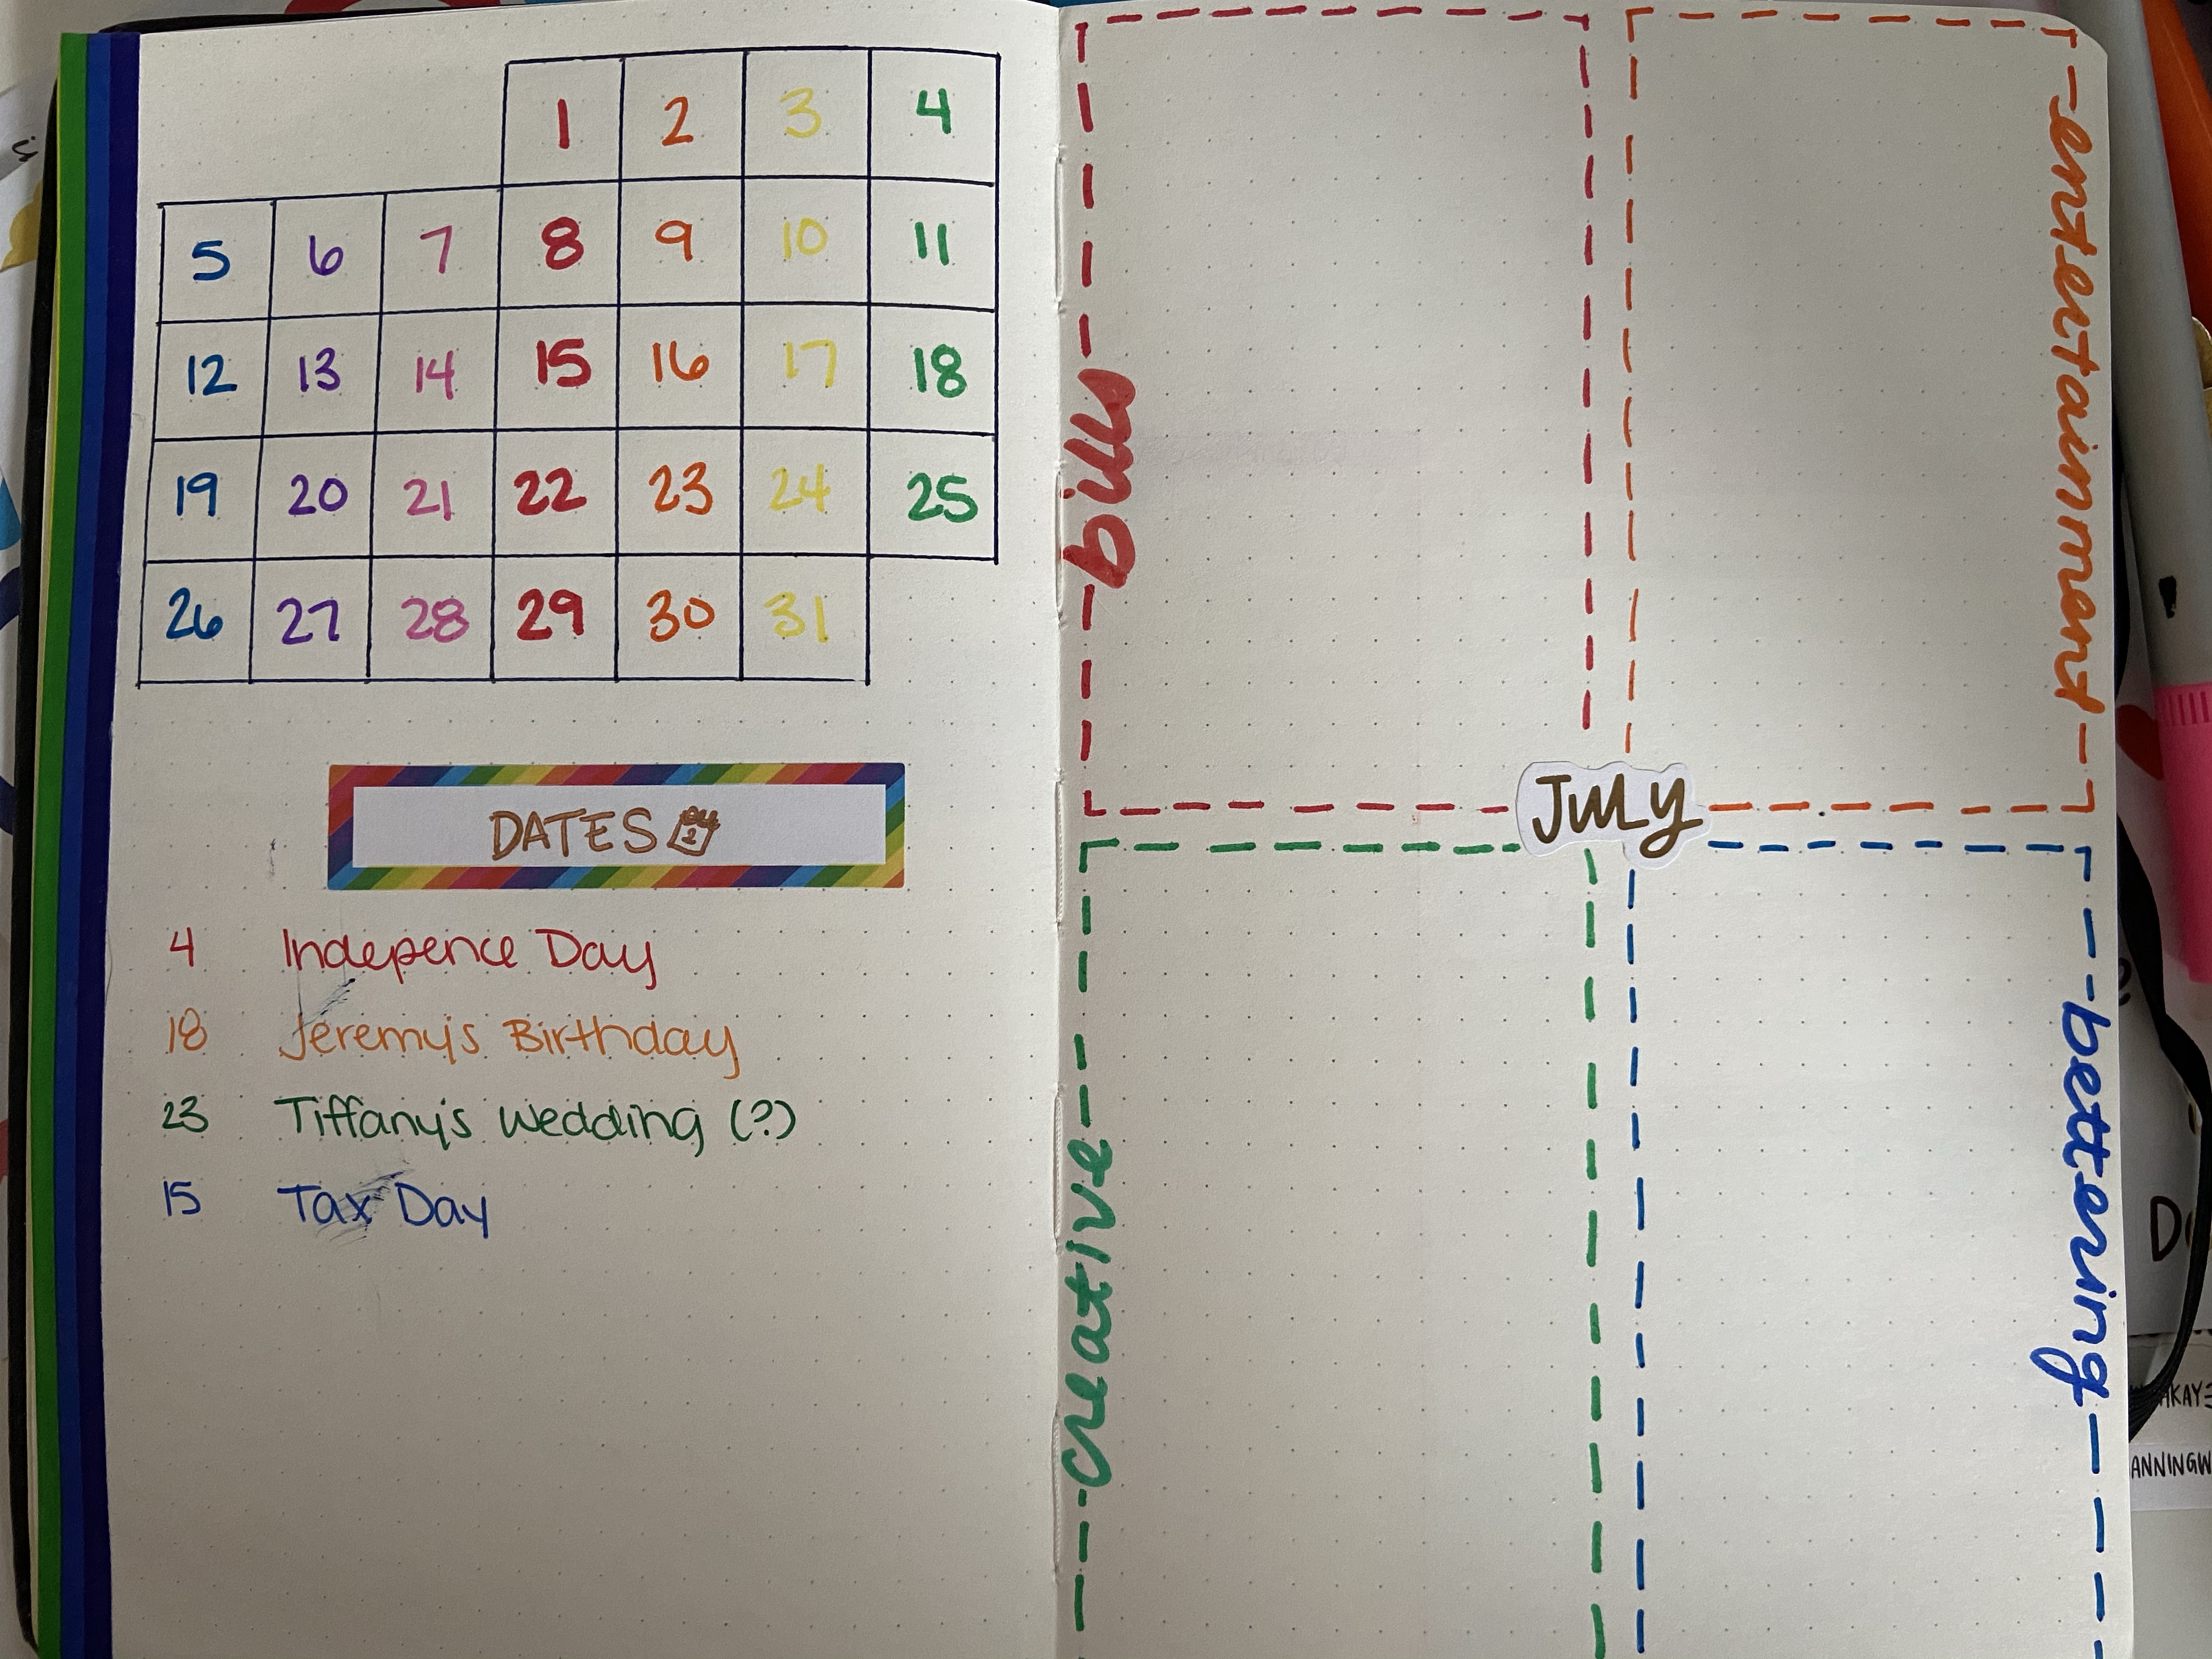 1 2 3 4
5 6 7 8 9 10 11
12 13 14 15 16 17 18
19 20 21 22 23 24 25
26 27 28 29 30 31
DATES
4 Indepence Day
18 Jeremy's Birthday
23 Tiffany's Wedding (?)
15 Tax Day
bills
entertainment
July
creative
bettering
AKAY
ANNINGW